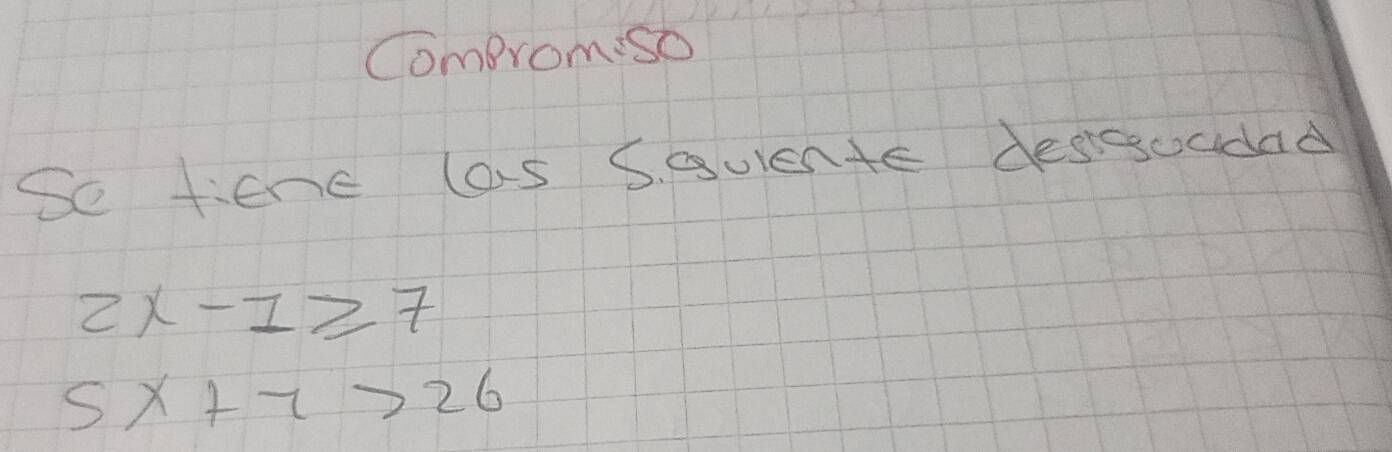 Compromiso
Se tiene las siguiente desigualdad
2x - 1 ≥ 7
5x + 1 > 26